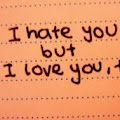 I hate you
but
I love you,